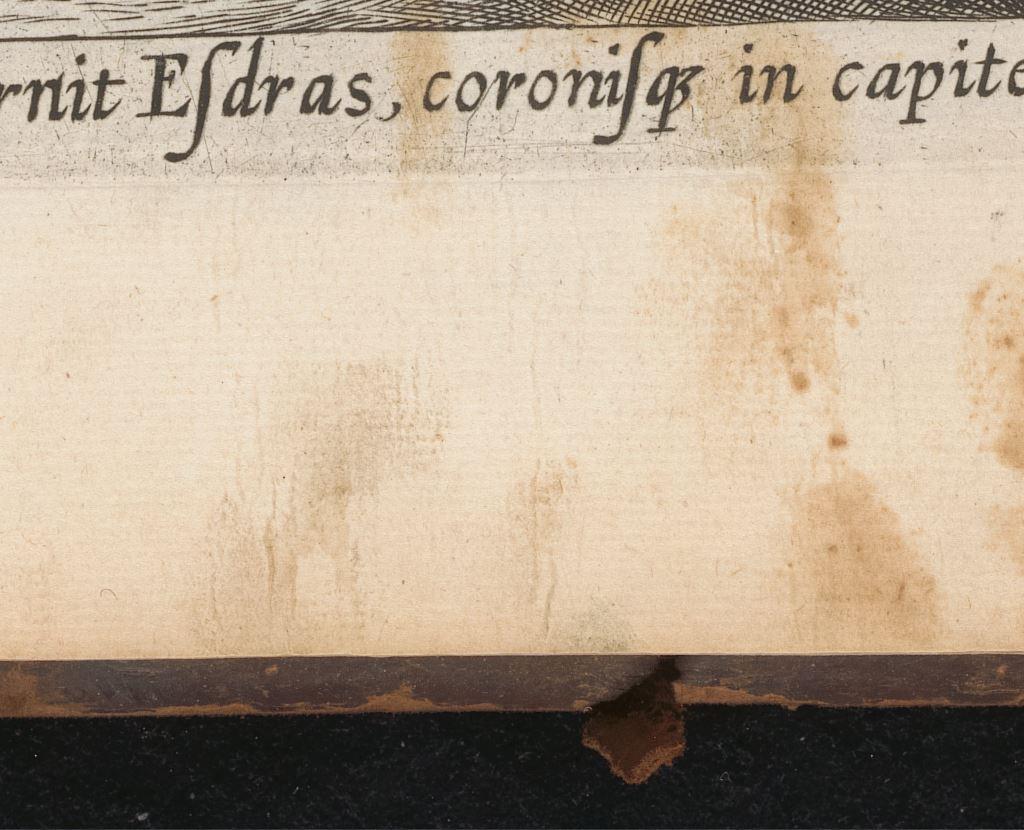 rnit Eſdras, coroniſqꝫ in capite